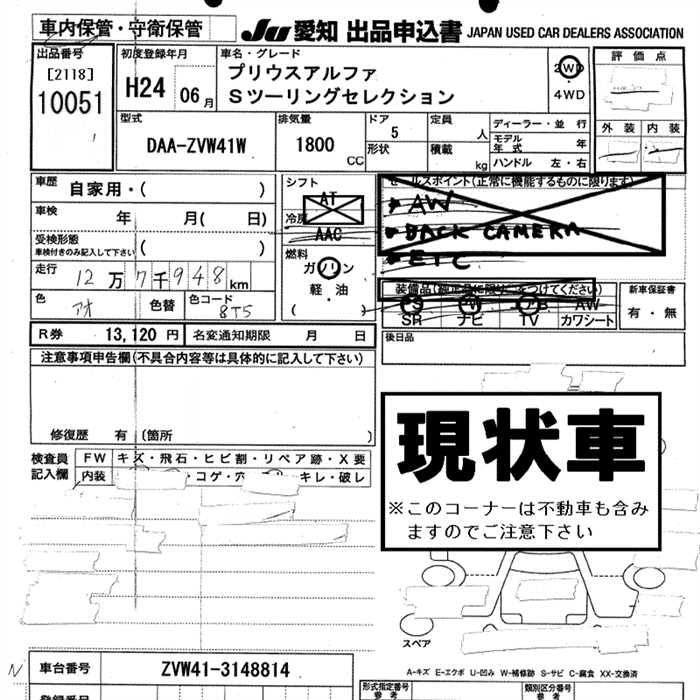 車内保管・守衛保管
JU 愛知 出品申込書 JAPAN USED CAR DEALERS ASSOCIATION
出品番号
[2118]
10051
初度登録年月
H24 06月
車名・グレード
プリウスアルファ
Sツーリングセレクション
2WD
・
4WD
評価点
外装 内装
型式
DAA-ZVW41W
排気量
1800
CC
ドア
5
形状
定員
人
積載
kg
ディーラー・並 行
モデル年式 年
ハンドル 左・右
車歴 自家用・( )
車検 年 月( 日)
受検形態
車検付きのみ記入して下さい ( )
走行 12万7千948km
色 アオ 色替 色コード 8T5
シフト
AT
冷房
AAC
燃料
ガソリン
軽・油
( )
セールスポイント(正常に機能するものに限ります)
AW
BACK CAMERA
ETC
SR ナビ TV カワシート
AW
新車保証書
有・無
R券 13,120円 名変通知期限 月 日
後日品
注意事項申告欄(不具合内容等は具体的に記入して下さい)
修復歴 有 〔箇所 〕
検査員
記入欄
FW キズ・飛石・ヒビ割・リペア跡・X要
内装 ・コゲ・穴 ・キレ・破レ
現状車
※このコーナーは不動車も含み
ますのでご注意下さい
スペア
A-キズ E-エクボ U-凹み W-補修跡 S-サビ C-腐食 XX-交換済
N 車台番号 ZVW41-3148814
形式指定番号
参考
類別区分番号
参考
登録番号